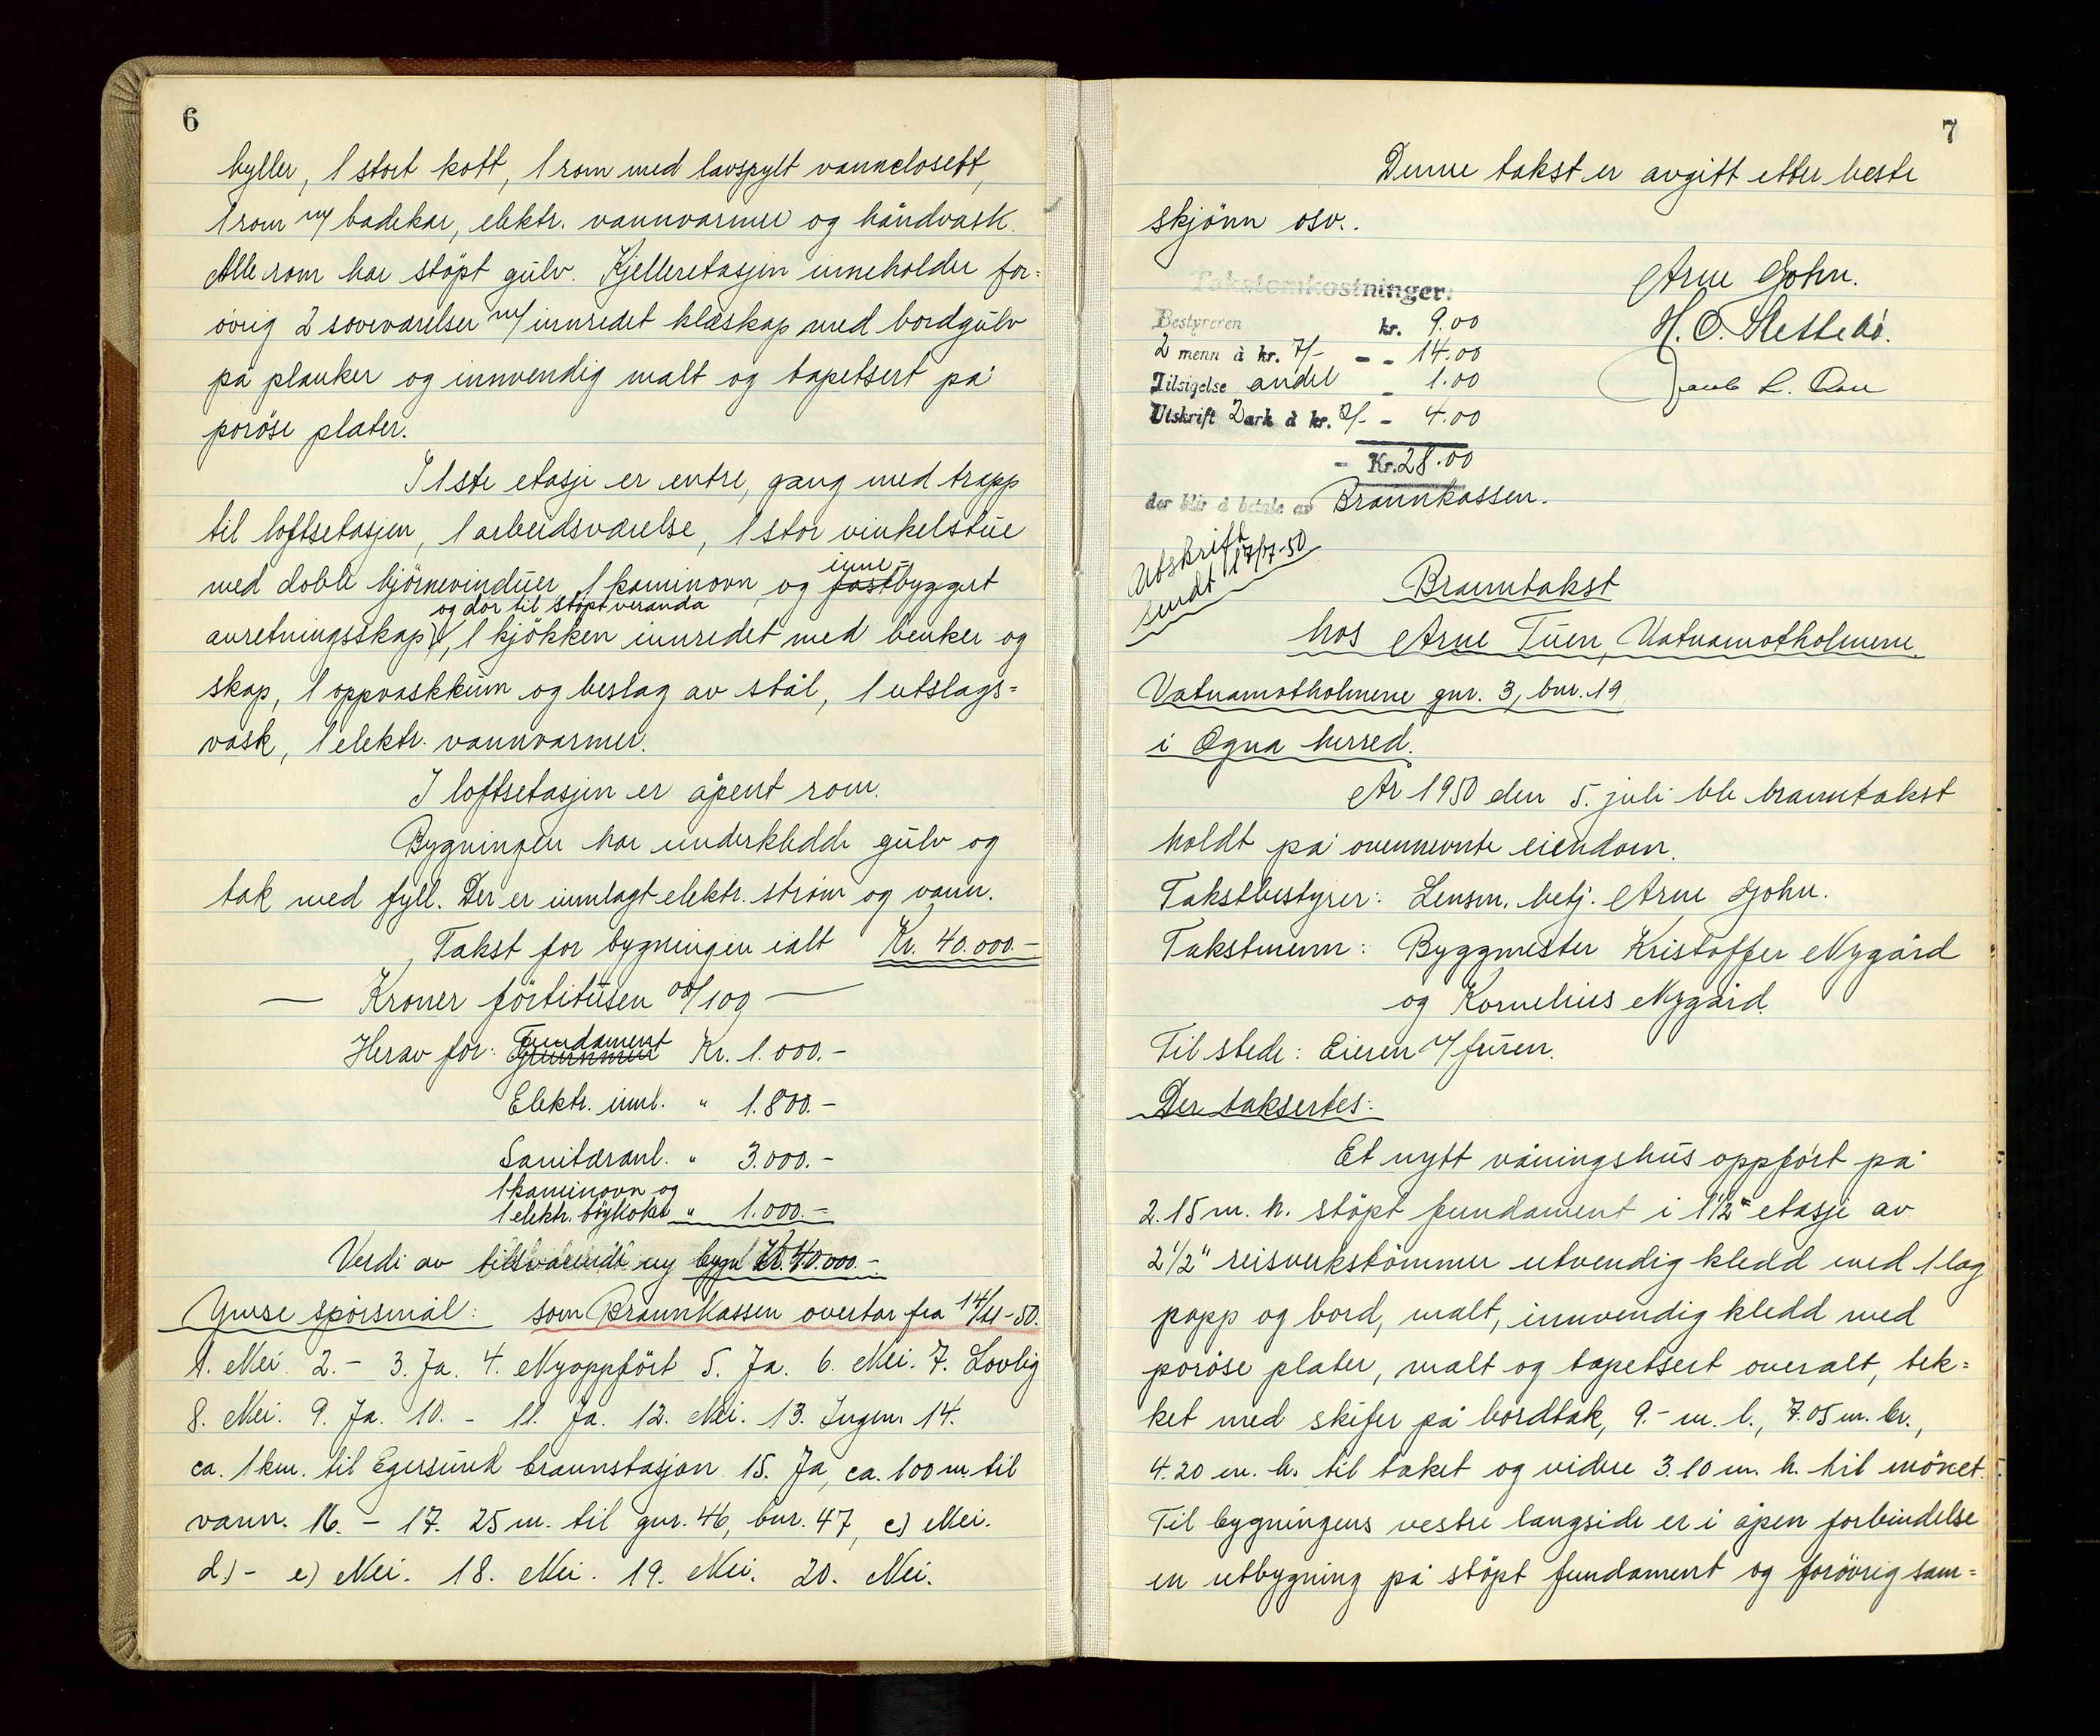 6
hyller, 1 stort kott, 1 rom med lavspylt vannclosett,
1 rom m/ badekar, elektr. vannvarmer og håndvask.
Alle rom har støpt gulv. Kjelleretasjen inneholder for=
øvrig 2 soveværelser m/ innredet klæskap med bordgulv
på planker og innvendig malt og tapetsert på
porøse plater.
I 1ste etasje er entre, gang med trapp
til loftsetasjen, 1 arbeidsværelse, 1 stor vinkelstue
inne-
med doble hjørnevinduer, 1 kaminovn, og fastbygget
og dør til støpt veranda
anretningsskap, 1 kjøkken innredet med benker og
skap, 1 oppvaskkum og beslag av stål, 1 utslags=
vask, 1 elektr. vannvarmer.
I loftsetasjen er åpent rom.
Bygningen har underkledde gulv og
tak med fyll. Der er innlagt elektr. strøm og vann.
Takst for bygningen ialt Kr. 40.000.-
— Kroner förtitusen 00/100 —
Fundament
Herav for: Grunnmur Kr. 1.000.-
Elektr. innl. " 1.800.-
Sanitæranl. " 3.000.-
1 kaminovn og
1 elektr. " 1.000.-
Verdi av tilsvarende ny bygn Kr. 40.000.-
Ymse spørsmål: som Brannkassen overtar fra 14/11-50.
1. Nei. 2. - 3. Ja. 4. Nyoppført 5. Ja. 6. Nei. 7. Lovlig
8. Nei. 9. Ja. 10. - 11. Ja. 12. Nei. 13. Ingen 14.
ca. 1 km. til Egersund brannstasjon 15. Ja, ca. 100 m til
vann. 16. - 17. 25 m. til gnr. 46, bnr. 47, c) Nei.
d) - e) Nei. 18. Nei. 19. Nei. 20. Nei.
7
Denne takst er avgitt etter beste
skjønn osv..
Takstomkostninger:
Bestyreren kr. 9.00
2 menn à kr. 7/- - - 14.00
Tilsigelse andel - 1.00
Utskrift 2 ark à kr. 2/- - 4.00
- Kr. 28.00
der blir å betale av Brannkassen.
Arne Gohn.
H. O. Slettebö.
Jacob L.
Utskrift
sendt 17/7-50
Branntakst
hos Arne Tuen, Vatnamotholmene.
Vatnamotholmene gnr. 3, bnr. 19
i Ogna herred.
År 1950 den 5. juli ble branntakst
holdt på ovennevnte eiendom.
Takstbestyrer: Lensm. betj. Arne Gohn.
Takstmenn: Byggmester Kristoffer Nygård
og Kornelius Nygård.
Til stede: Eieren m/ fruen.
Der taksertes:
Et nytt våningshus oppført på
2.15 m. h. støpt fundament i 1 1/2 etasje av
2 1/2" reisverkstømmer utvendig kledd med 1 lag
papp og bord, malt, innvendig kledd med
porøse plater, malt og tapetsert overalt, tek=
ket med skifer på bordtak, 9.- m. l., 7.05 m. br.,
4.20 m. h. til taket og videre 3.10 m. h. til mønet.
Til bygningens vestre langside er i åpen forbindelse
en utbygning på støpt fundament og forøvrig sam=